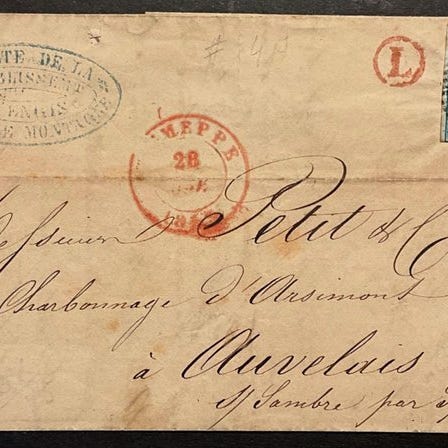 # 40
L
TE DE LA
BLISMENT
ENGIS
DE MONTAGNE
JEMEPPE
28
Messieurs Petit & C
Charbonnage d'Arsimont
à Auvelais
s/ Sambre par